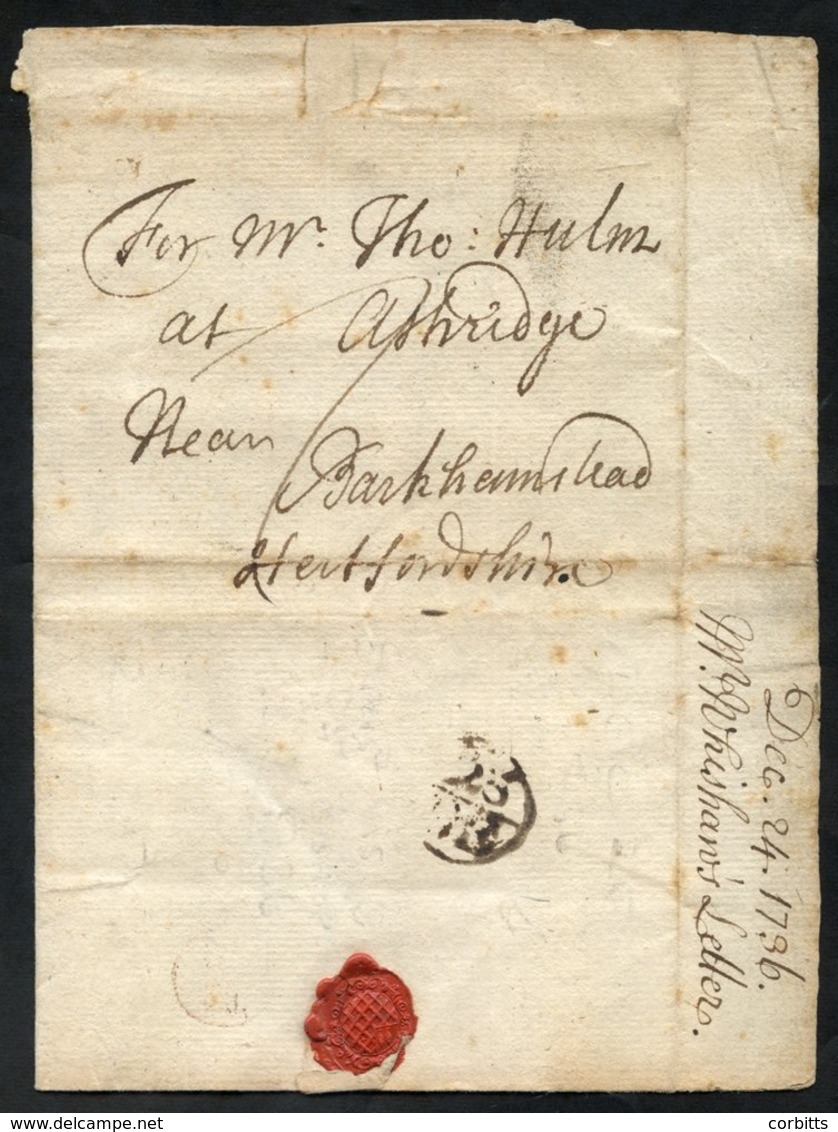 For Mr. Tho: Hulm
at Ashridge
Near Barkhamstead
Hertfordshire.
Dec. 24. 1736.
Mr. Whishaw's Letter.
corbitts